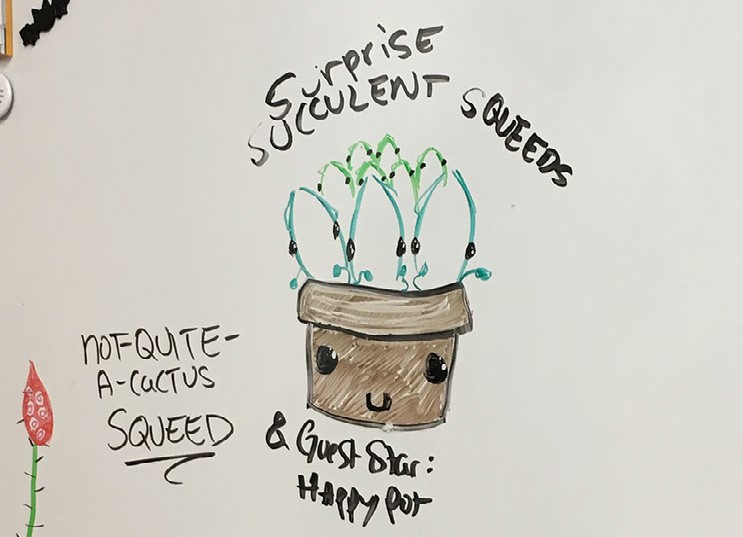 Surprise
SUCCULENT SQUEEDS
NOT-QUITE-
A-CACTUS
SQUEED
& Guest Star:
HAPPY POT